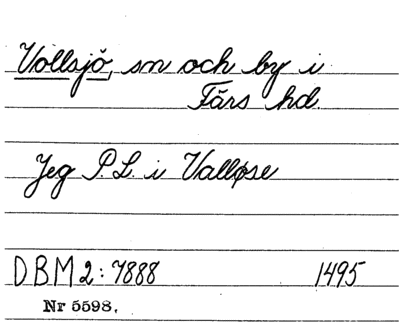 Vollsjö, sn och by i
Färs hd
Jeg P.L. i Valløse
DBM 2:7888 1495
Nr 5598.